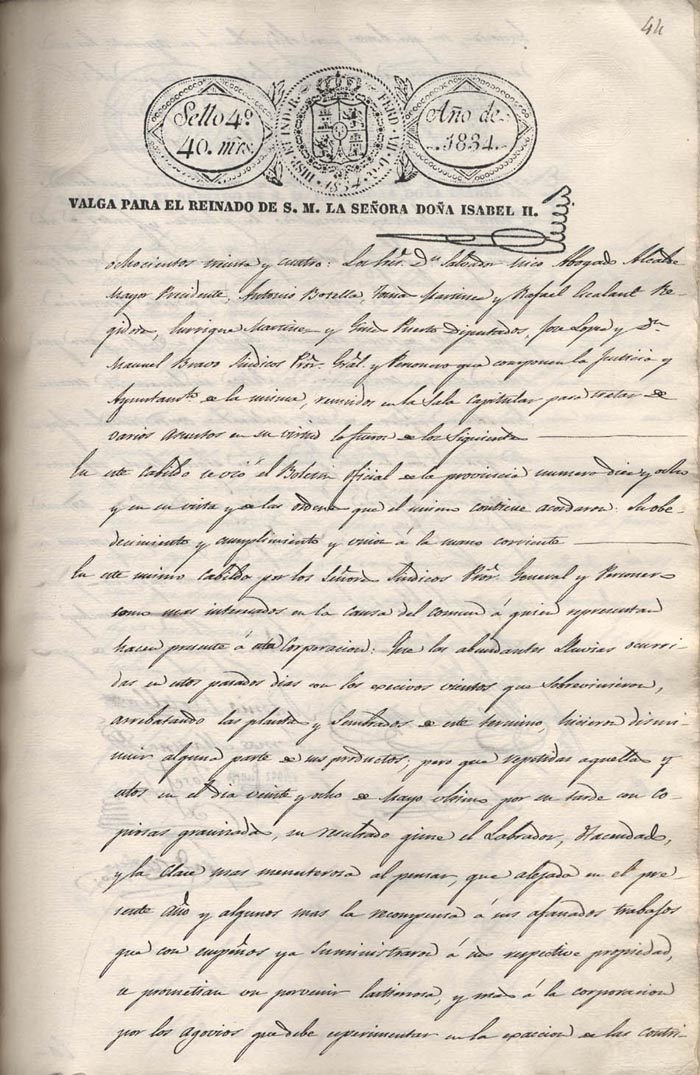 44
Sello 4º
40. mrs.
HISP. ET IND. R. FERD. VII. D. G.
1834
Año de
1834.
VALGA PARA EL REINADO DE S. M. LA SEÑORA DOÑA ISABEL II.
ochocientos treinta y cuatro: Los Sres. Dn. Salvador Mico Abogado Alcalde
Mayor Presidente, Antonio Botella, Tomas Martinez y Rafael Escalant Re-
gidores, Enrrique Martinez y Ginés Puerto Diputados, Jose Lopez y Dn.
Manuel Bravo Sindicos Prôr. Gral. y Personero que componen la Justicia y
Ayuntamto. de la misma, reunidos en la Sala Capitular para tratar de
varios asuntos en su virtud lo fueron de los Siguientes
En este cabildo se vió el Boletin oficial de la provincia numero diez y ocho
y en su vista y de las ordenes que el mismo contiene acordaron: Su obe-
decimiento y cumplimiento y unir á la mano corriente
En este mismo cabildo por los Señores Sindicos Prôr. General y Personero
como mas interesados en la causa del comun á quien representan
hacen presente á esta Corporacion: Que las abundantes lluvias ocurri-
das en estos pasados dias con los excesivos vientos que sobrevinieron,
arrebatando las plantas y Sembrados de este termino, hicieron dismi-
nuir alguna parte de sus productos; pero que repetidas aquellas y
estos en el dia veinte y ocho de Mayo ultimo por su tarde con co-
piosas granizadas, su resultado gime el Labrador, Hacendado,
y la clase mas menesterosa al pensar, que alejada en el pre
sente año y algunos mas la recompensa á sus afanados trabajos
que con empeños ya suministraron á sus respective propiedad,
se prometian un porvenir lastimoso, y mas á la corporacion
por los agovios que debe esperimentar en la exaccion de las contri-